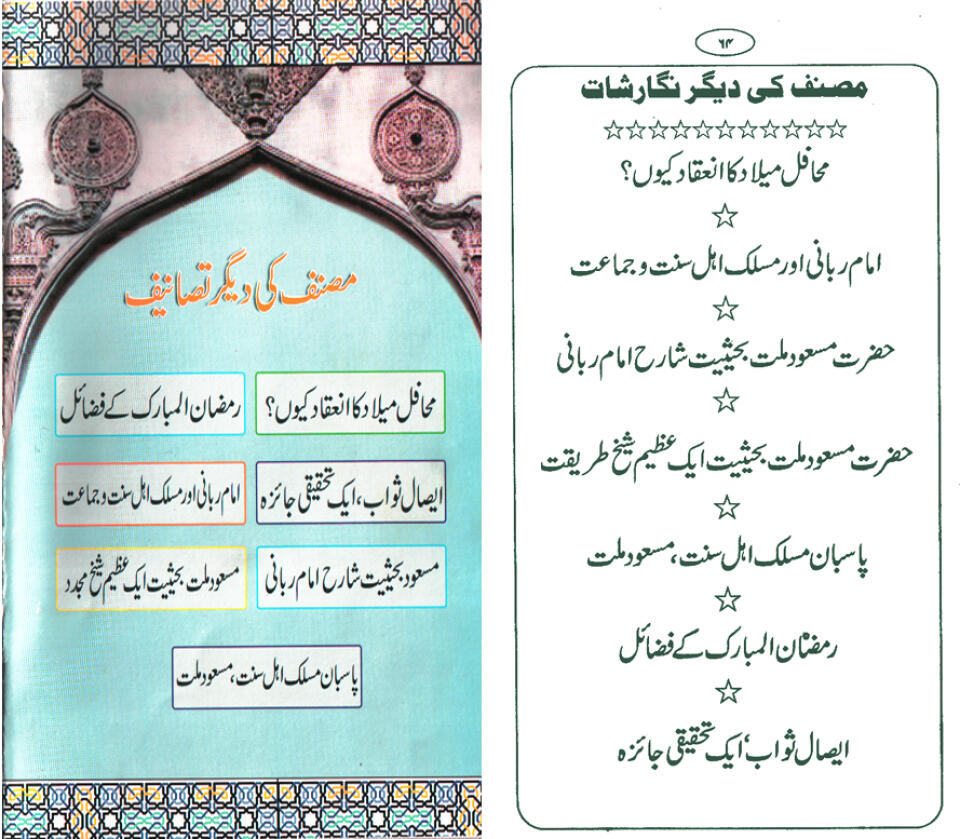 مصنف کی دیگر تصانیف
محافل میلاد کا انعقاد کیوں؟
رمضان المبارک کے فضائل
ایصال ثواب، ایک تحقیقی جائزہ
امام ربانی اور مسلک اہل سنت و جماعت
مسعود بحیثیت شارح امام ربانی
مسعود ملت بحیثیت ایک عظیم شیخ مجدد
پاسبان مسلک اہل سنت، مسعود ملت
۶۴
مصنف کی دیگر نگارشات
محافل میلاد کا انعقاد کیوں؟
امام ربانی اور مسلک اہل سنت و جماعت
حضرت مسعود ملت بحیثیت شارح امام ربانی
حضرت مسعود ملت بحیثیت ایک عظیم شیخ طریقت
پاسبان مسلک اہل سنت، مسعود ملت
رمضان المبارک کے فضائل
ایصال ثواب، ایک تحقیقی جائزہ